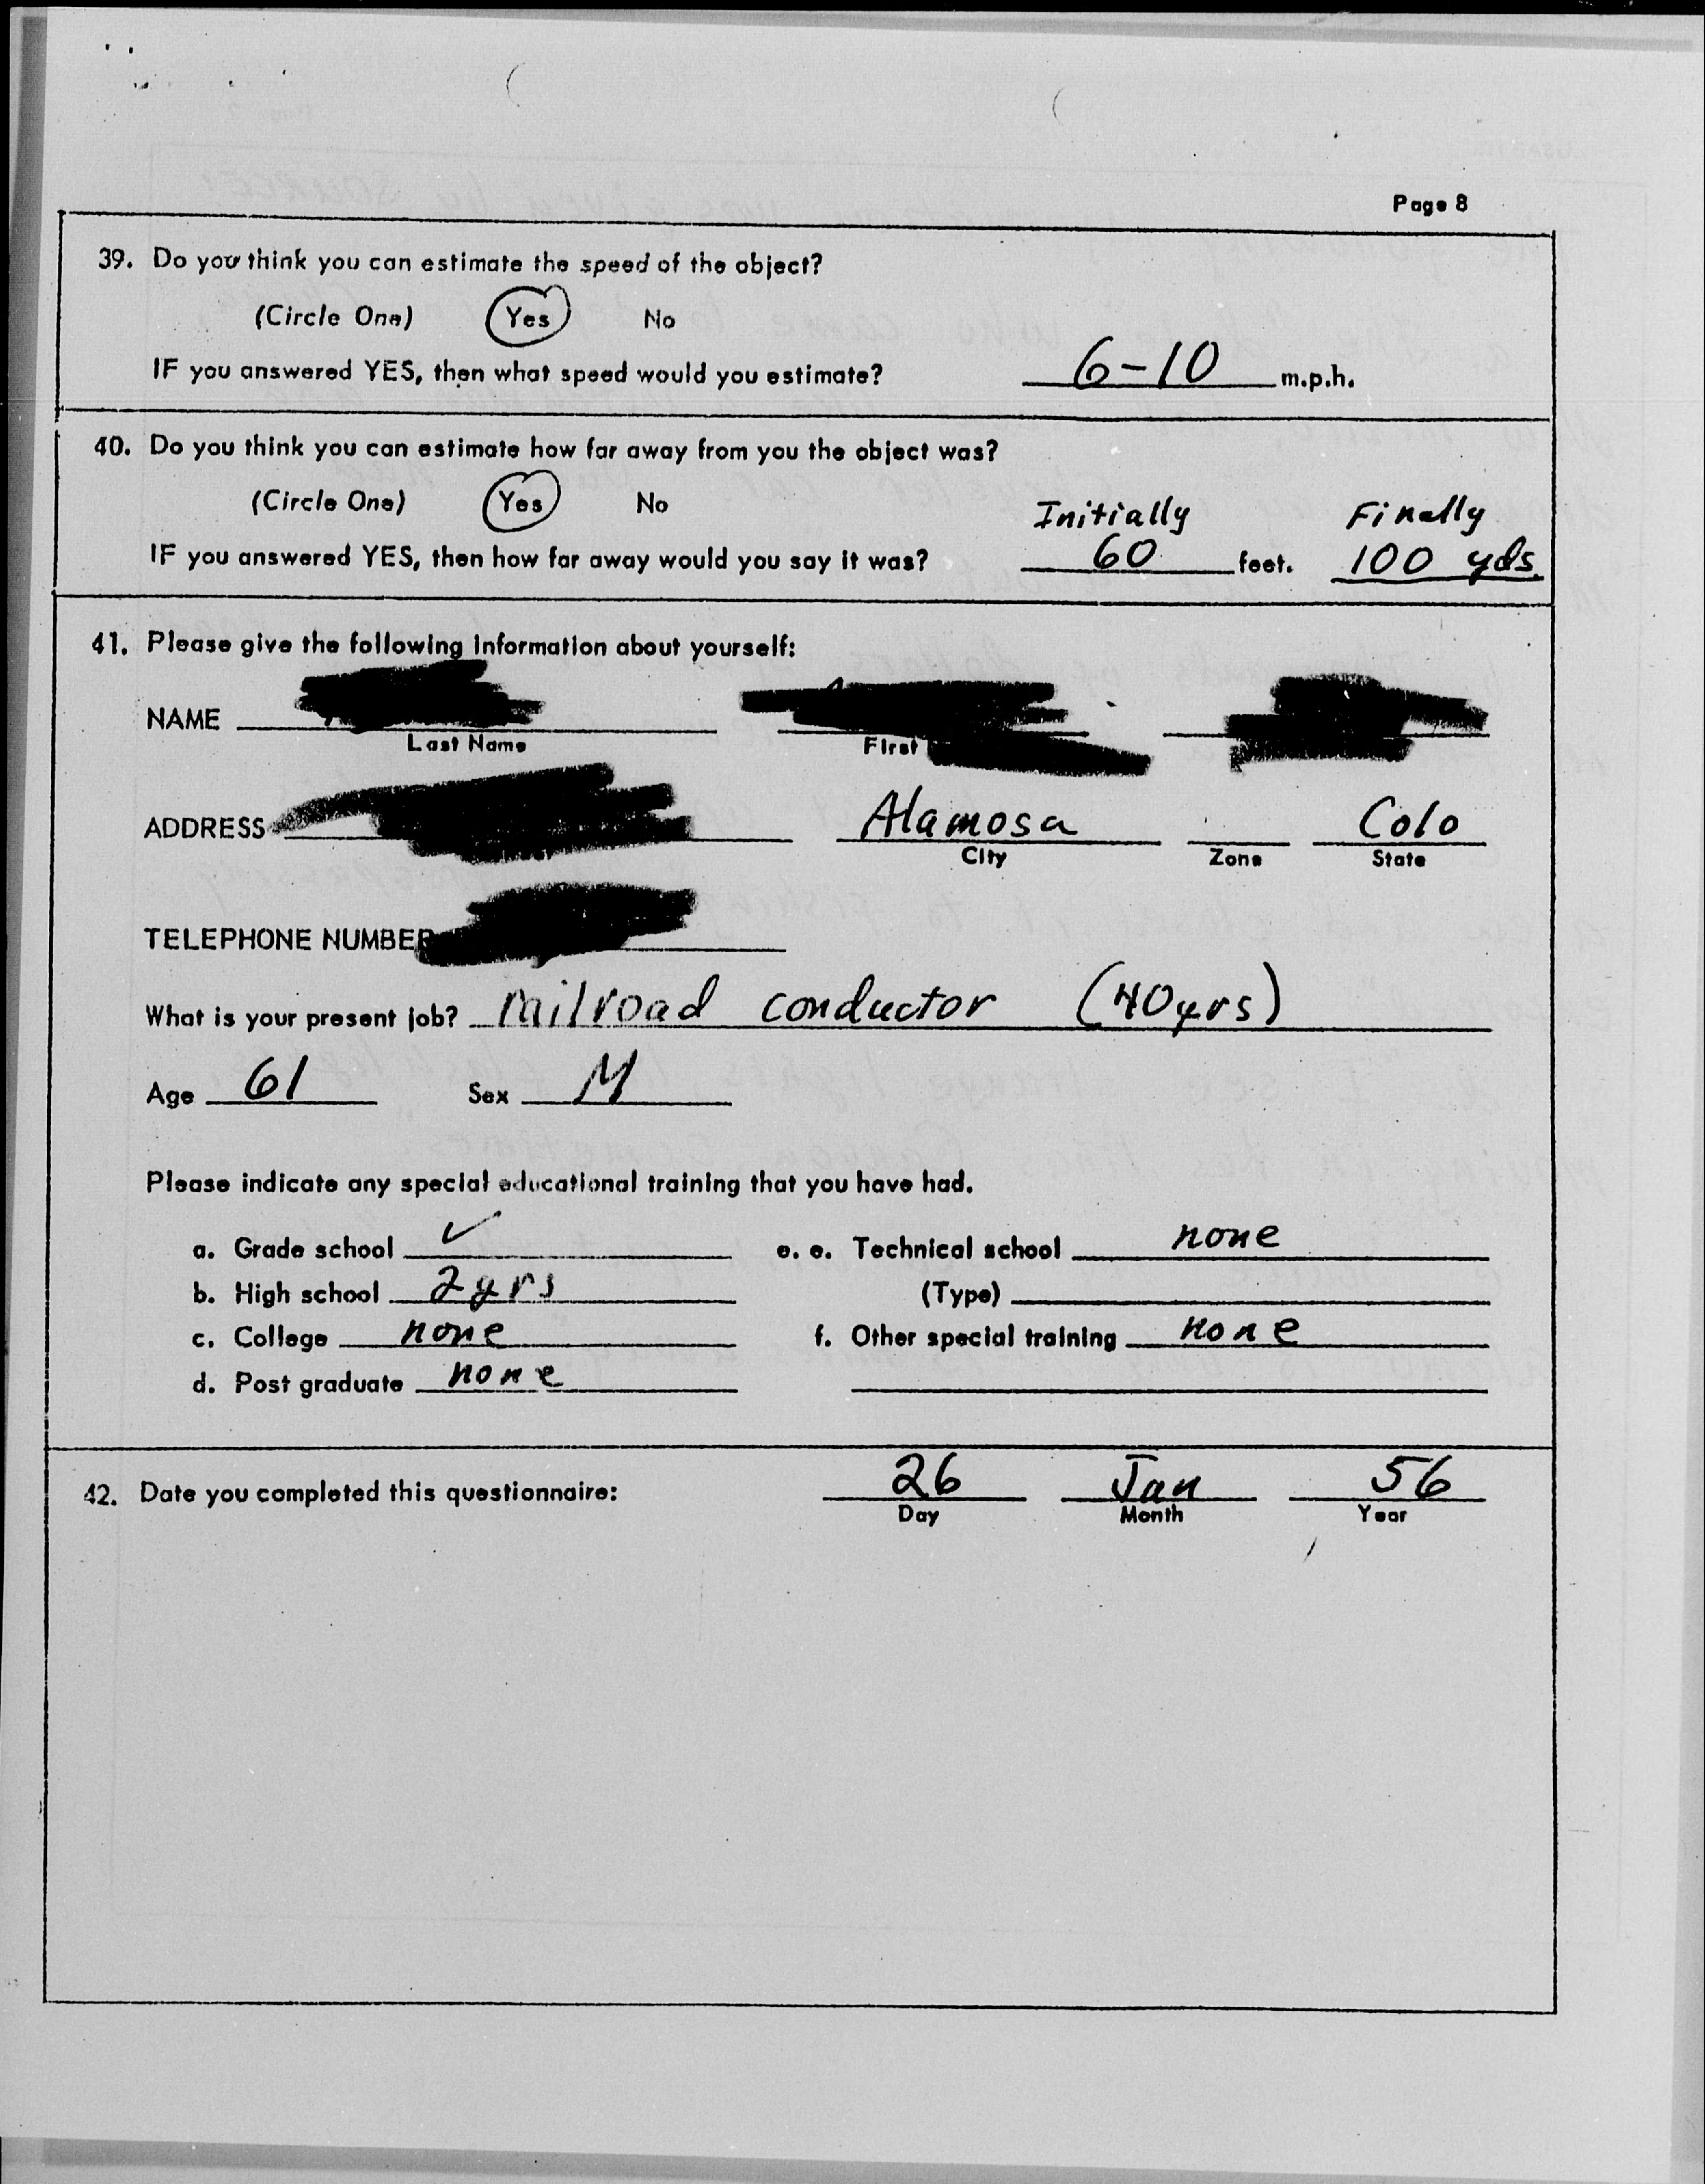 Page 8
39. Do you think you can estimate the speed of the object?
(Circle One) Yes No
IF you answered YES, then what speed would you estimate? 6-10 m.p.h.
40. Do you think you can estimate how far away from you the object was?
(Circle One) Yes No Initially Finally
IF you answered YES, then how far away would you say it was? 60 feet. 100 yds.
41. Please give the following information about yourself:
NAME
Last Name First
ADDRESS Alamosa Colo
City Zone State
TELEPHONE NUMBER
What is your present job? railroad conductor (40yrs)
Age 61 Sex M
Please indicate any special educational training that you have had.
a. Grade school ✓ e. e. Technical school none
b. High school 2yrs (Type)
c. College none f. Other special training none
d. Post graduate none
42. Date you completed this questionnaire: 26 Jan 56
Day Month Year